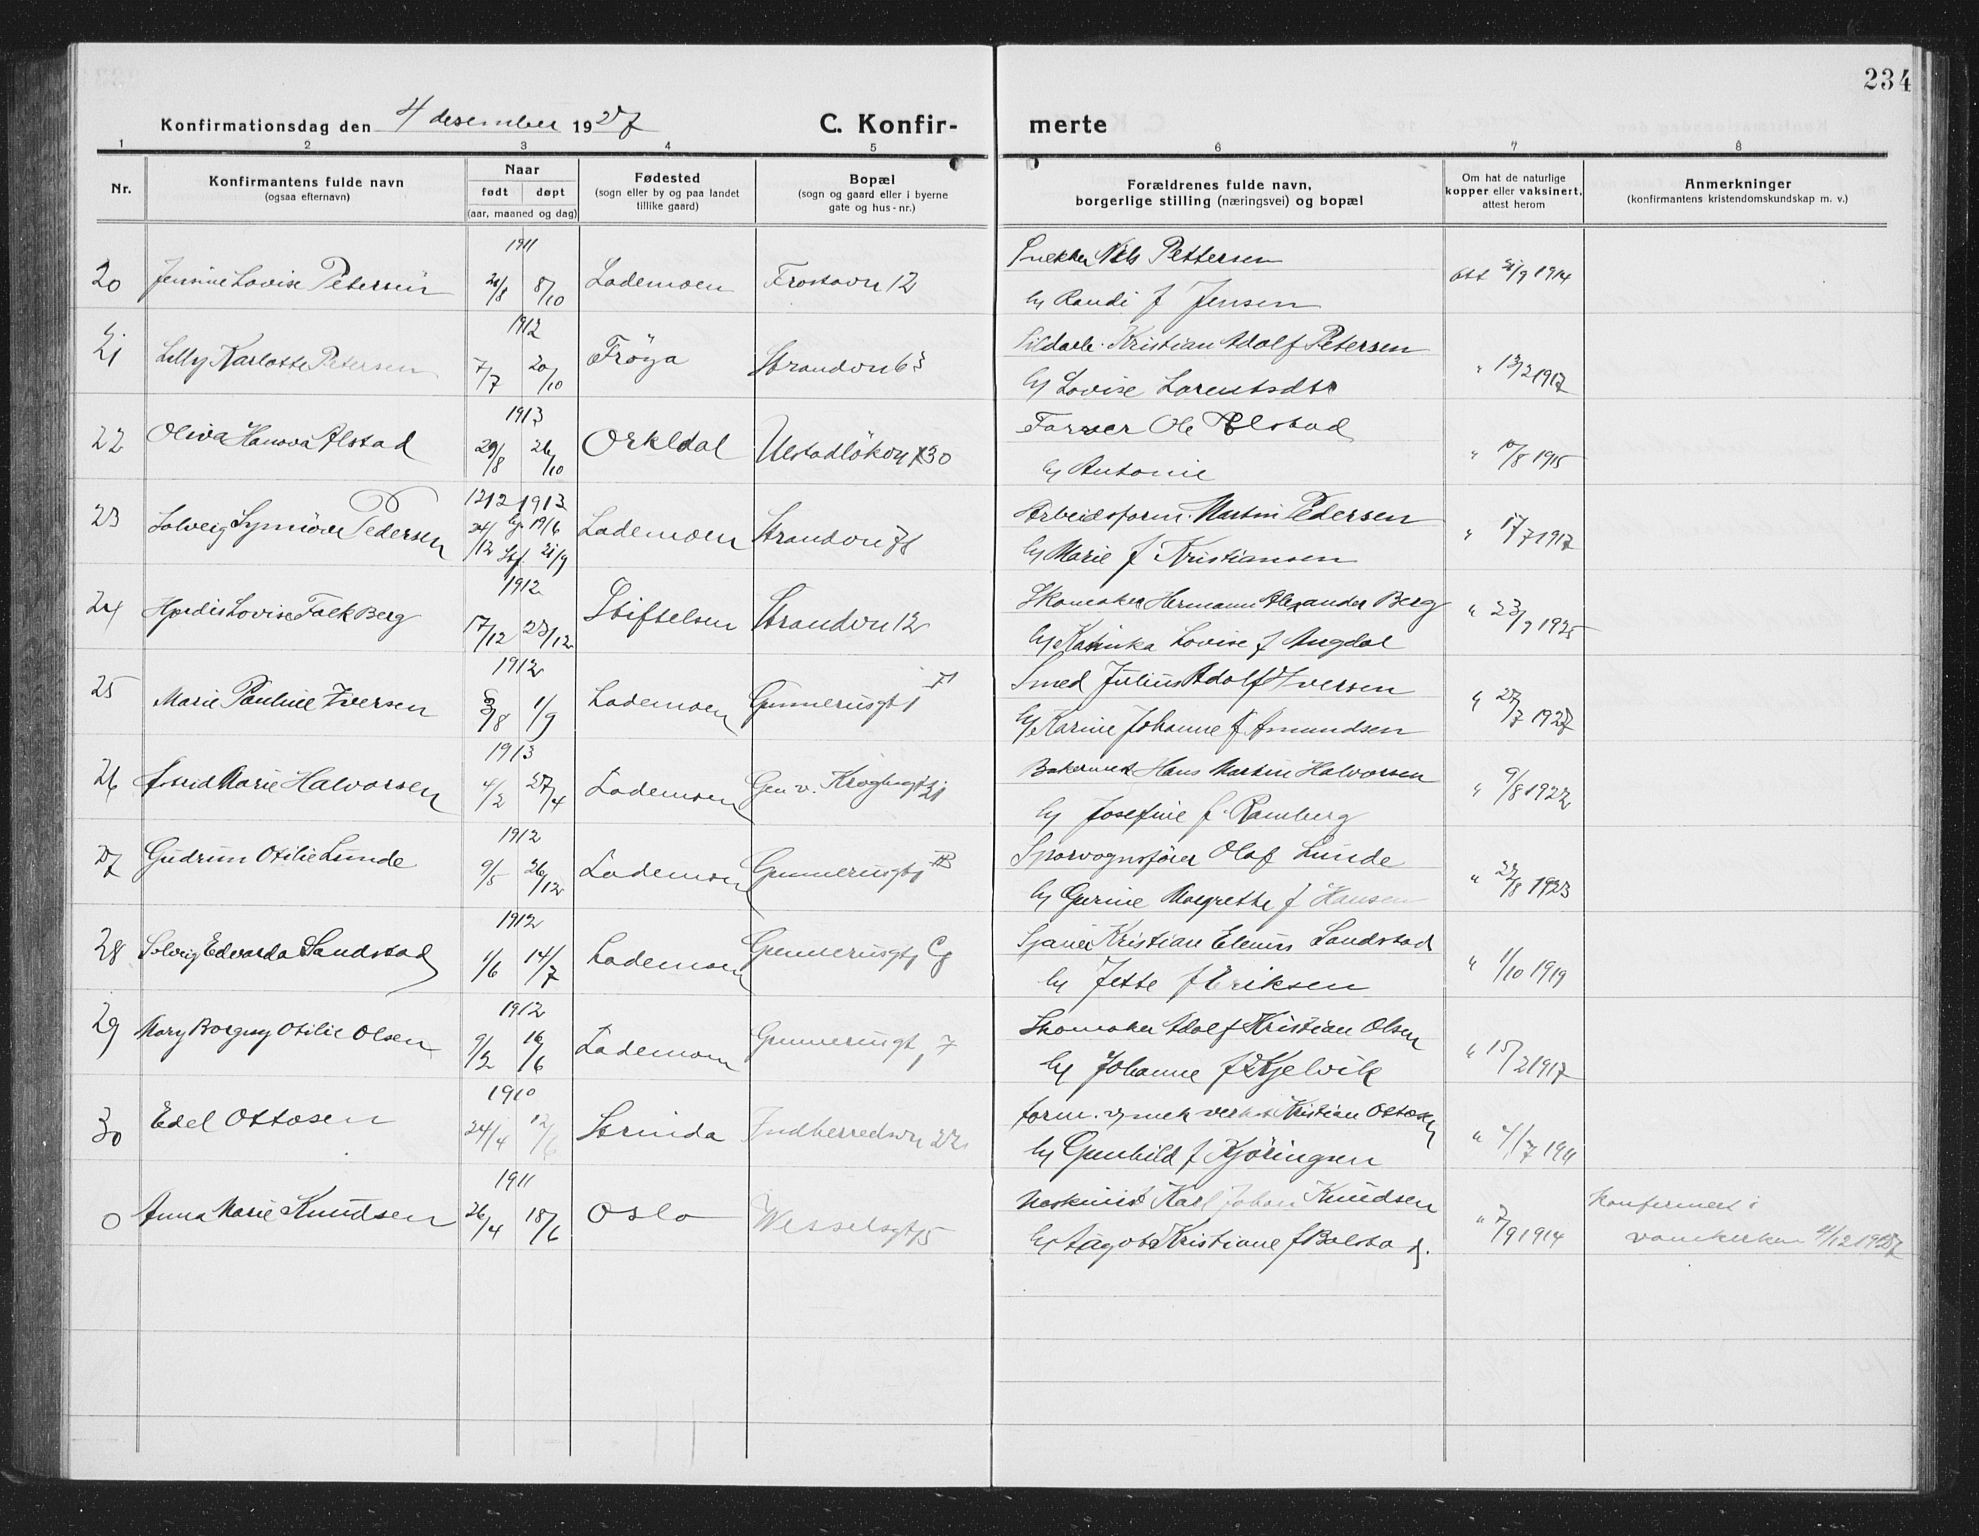 234
Konfirmationsdag den 4 desember 1927 C. Konfir- merte
1 2 3 4 5 6 7 8
Nr. Konfirmantens fulde navn (ogsaa efternavn) Naar født døpt (aar, maaned og dag) Fødested (sogn eller by og paa landet tillike gaard) Bopæl (sogn og gaard eller i byerne gate og hus-nr.) Forældrenes fulde navn, borgerlige stilling (næringsvei) og bopæl Om hat de naturlige kopper eller vaksinert, attest herom Anmerkninger (konfirmantens kristendomskundskap m. v.)
1911 Snekker Nils Pettersen
20 Jensine Lovise Petersen 8/10 Lademoen Frostavn 12 Hu Randi f Jensen att /9 1914
1912 Kristian Adolf Petersen
21 Lilly Karlotte Petersen 7/7 20/10 Frøya Strandvn 63 Hu Lovise Lorentsdtr " 13/2 1917
1913 Ole Alstad
22 Oliva Alstad 29/8 26/10 Orkldal 30 Hu Antonie " 10/8 1915
1212 1913 Arbeidsform. Martin Pedersen
23 Solveig Synnöve Pedersen 24/12 Hj 19/6 Stf. 21/9 Lademoen Strandvn 71 Hu Marie f Kristiansen " 17/7 1917
1912 Skomaker Hermann Alexander Berg
24 Hjørdis Lovise Falk Berg 17/12 23/12 Stiftelsen Strandvn 12 Hu Kaninka Lovise f Mugdal " 23/9 1925
1912 Smed Julius Adolf Iversen
25 Marie Pauline Iversen /8 1/9 Lademoen Gunnerusgt 1 Hu Karine Johanne f Amundsen " 27/7 1927
1913 Bakermest Hans Martin Halvorsen
26 Astrid Marie Halvorsen 4/2 27/4 Lademoen Gen v. Kroghsgt 21 Hu Josefine f. Ramberg " 9/8 1922
1912 Sporvognsfører Olaf Lunde
27 Gudrun Otilie Lunde 9/5 26/12 Lademoen Gunnerusgt Hu Gurine Margrethe f Hansen " 22/8 1923
1912 Kristian Elenius Sandstad
28 Solveig Edvarda Sandstad 1/6 14/7 Lademoen Gunnerusgt Hu Jette f Eriksen " 1/10 1919
1912 Skomaker Adolf Kristian Olsen
29 Mary Borgny Otilie Olsen 9/2 16/6 Lademoen Gunnerusgt 7 Hu Johanne f Kjelvik " 15/2 1917
1910 form. v mek verkst Kristian Ottosen
30 Edel Ottosen 24/4 12/6 Strinda Indherredsvn 22 Hu Gunhild f Kjøringsen " 4/7 1911
1911 Maskinist Karl Johan Knudsen
0 Anna Marie Knudsen 26/4 18/6 Oslo Wesselsgt 15 Hu Aagot Kristiane f Bolstad. " 7/9 1914 Konfirmert i vorkirken 4/12 1927